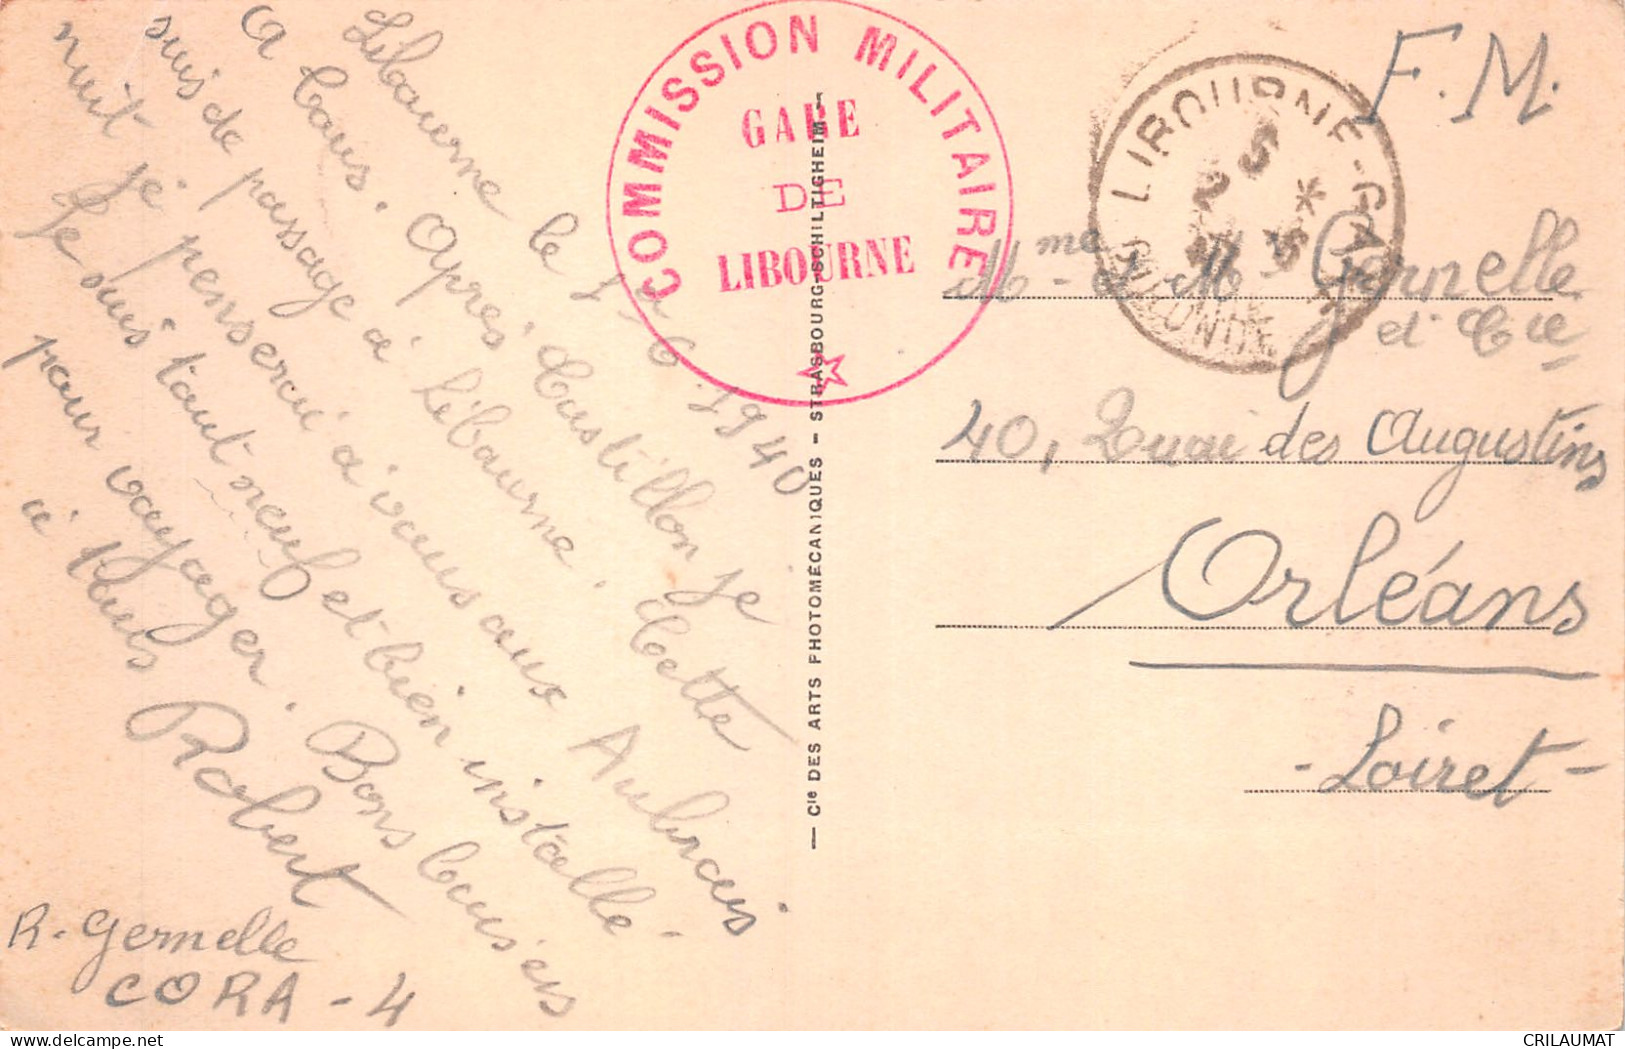 Libourne le 1-6-1940
A Tous. Après Castillon je
suis de passage à Libourne. Cette
nuit je penserai à vous aux Aubrais.
Je suis tout neuf et bien installé
pour voyager. Bons baisers
à tous
Robert
R. Gernelle
CORA - 4
COMMISSION MILITAIRE
GARE
DE
LIBOURNE
— Cie DES ARTS PHOTOMÉCANIQUES – STRASBOURG-SCHILTIGHEIM —
LIBOURNE-GARE
GIRONDE
F.M.
Mme & M. Gernelle
et Cie
40, Quai des Augustins
Orléans
- Loiret -
CRILAUMAT